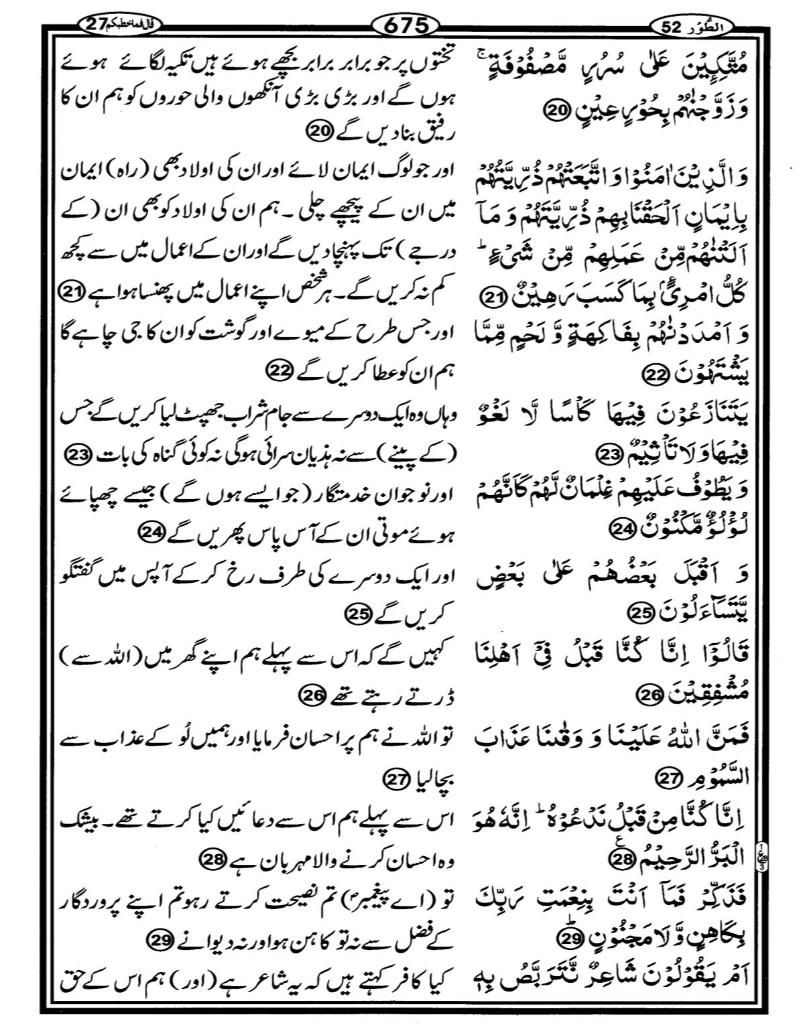 الطُّوْر 52
675
قال فما خطبکم 27
مُتَّكِـِٕيْنَ عَلٰى سُرُرٍ مَّصْفُوْفَةٍ ۚ
وَزَوَّجْنٰهُمْ بِحُوْرٍ عِيْنٍ 20
وَالَّذِيْنَ اٰمَنُوْا وَاتَّبَعَتْهُمْ ذُرِّيَّتُهُمْ
بِاِيْمَانٍ اَلْحَقْنَا بِهِمْ ذُرِّيَّتَهُمْ وَمَآ
اَلَتْنٰهُمْ مِّنْ عَمَلِهِمْ مِّنْ شَىْءٍ ؕ
كُلُّ امْرِئٍۢ بِمَا كَسَبَ رَهِيْنٌ 21
وَ اَمْدَدْنٰهُمْ بِفَاكِهَةٍ وَّ لَحْمٍ مِّمَّا
يَشْتَهُوْنَ 22
يَتَنَازَعُوْنَ فِيْهَا كَاْسًا لَّا لَغْوٌ
فِيْهَا وَلَا تَاْثِيْمٌ 23
وَ يَطُوْفُ عَلَيْهِمْ غِلْمَانٌ لَّهُمْ كَاَنَّهُمْ
لُؤْلُؤٌ مَّكْنُوْنٌ 24
وَ اَقْبَلَ بَعْضُهُمْ عَلٰى بَعْضٍ
يَّتَسَآءَلُوْنَ 25
قَالُوْٓا اِنَّا كُنَّا قَبْلُ فِىْٓ اَهْلِنَا
مُشْفِقِيْنَ 26
فَمَنَّ اللّٰهُ عَلَيْنَا وَ وَقٰىنَا عَذَابَ
السَّمُوْمِ 27
اِنَّا كُنَّا مِنْ قَبْلُ نَدْعُوْهُ ؕ اِنَّهٗ هُوَ
الْبَرُّ الرَّحِيْمُ 28
فَذَكِّرْ فَمَآ اَنْتَ بِنِعْمَتِ رَبِّكَ
بِكَاهِنٍ وَّلَا مَجْنُوْنٍ 29
اَمْ يَقُوْلُوْنَ شَاعِرٌ نَّتَرَبَّصُ بِهٖ
تختوں پر جو برابر برابر بچھے ہوئے ہیں تکیہ لگائے ہوئے
ہوں گے اور بڑی بڑی آنکھوں والی حوروں کو ہم ان کا
رفیق بنا دیں گے 20
اور جو لوگ ایمان لائے اور ان کی اولاد بھی (راہ) ایمان
میں ان کے پیچھے چلی ۔ ہم ان کی اولاد کو بھی ان (کے
درجے) تک پہنچا دیں گے اور ان کے اعمال میں سے کچھ
کم نہ کریں گے۔ ہر شخص اپنے اعمال میں پھنسا ہوا ہے 21
اور جس طرح کے میوے اور گوشت کو ان کا جی چاہے گا
ہم ان کو عطا کریں گے 22
وہاں وہ ایک دوسرے سے جام شراب جھپٹ لیا کریں گے جس
(کے پینے) سے نہ ہذیان سرائی ہوگی نہ کوئی گناہ کی بات 23
اور نوجوان خدمتگار (جو ایسے ہوں گے) جیسے چھپائے
ہوئے موتی ان کے آس پاس پھریں گے 24
اور ایک دوسرے کی طرف رخ کرکے آپس میں گفتگو
کریں گے 25
کہیں گے کہ اس سے پہلے ہم اپنے گھر میں (اللہ سے)
ڈرتے رہتے تھے 26
تو اللہ نے ہم پر احسان فرمایا اور ہمیں لُو کے عذاب سے
بچا لیا 27
اس سے پہلے ہم اس سے دعائیں کیا کرتے تھے۔ بیشک
وہ احسان کرنے والا مہربان ہے 28
تو (اے پیغمبرؐ) تم نصیحت کرتے رہو تم اپنے پروردگار
کے فضل سے نہ تو کاہن ہو اور نہ دیوانے 29
کیا کافر کہتے ہیں کہ یہ شاعر ہے (اور) ہم اس کے حق